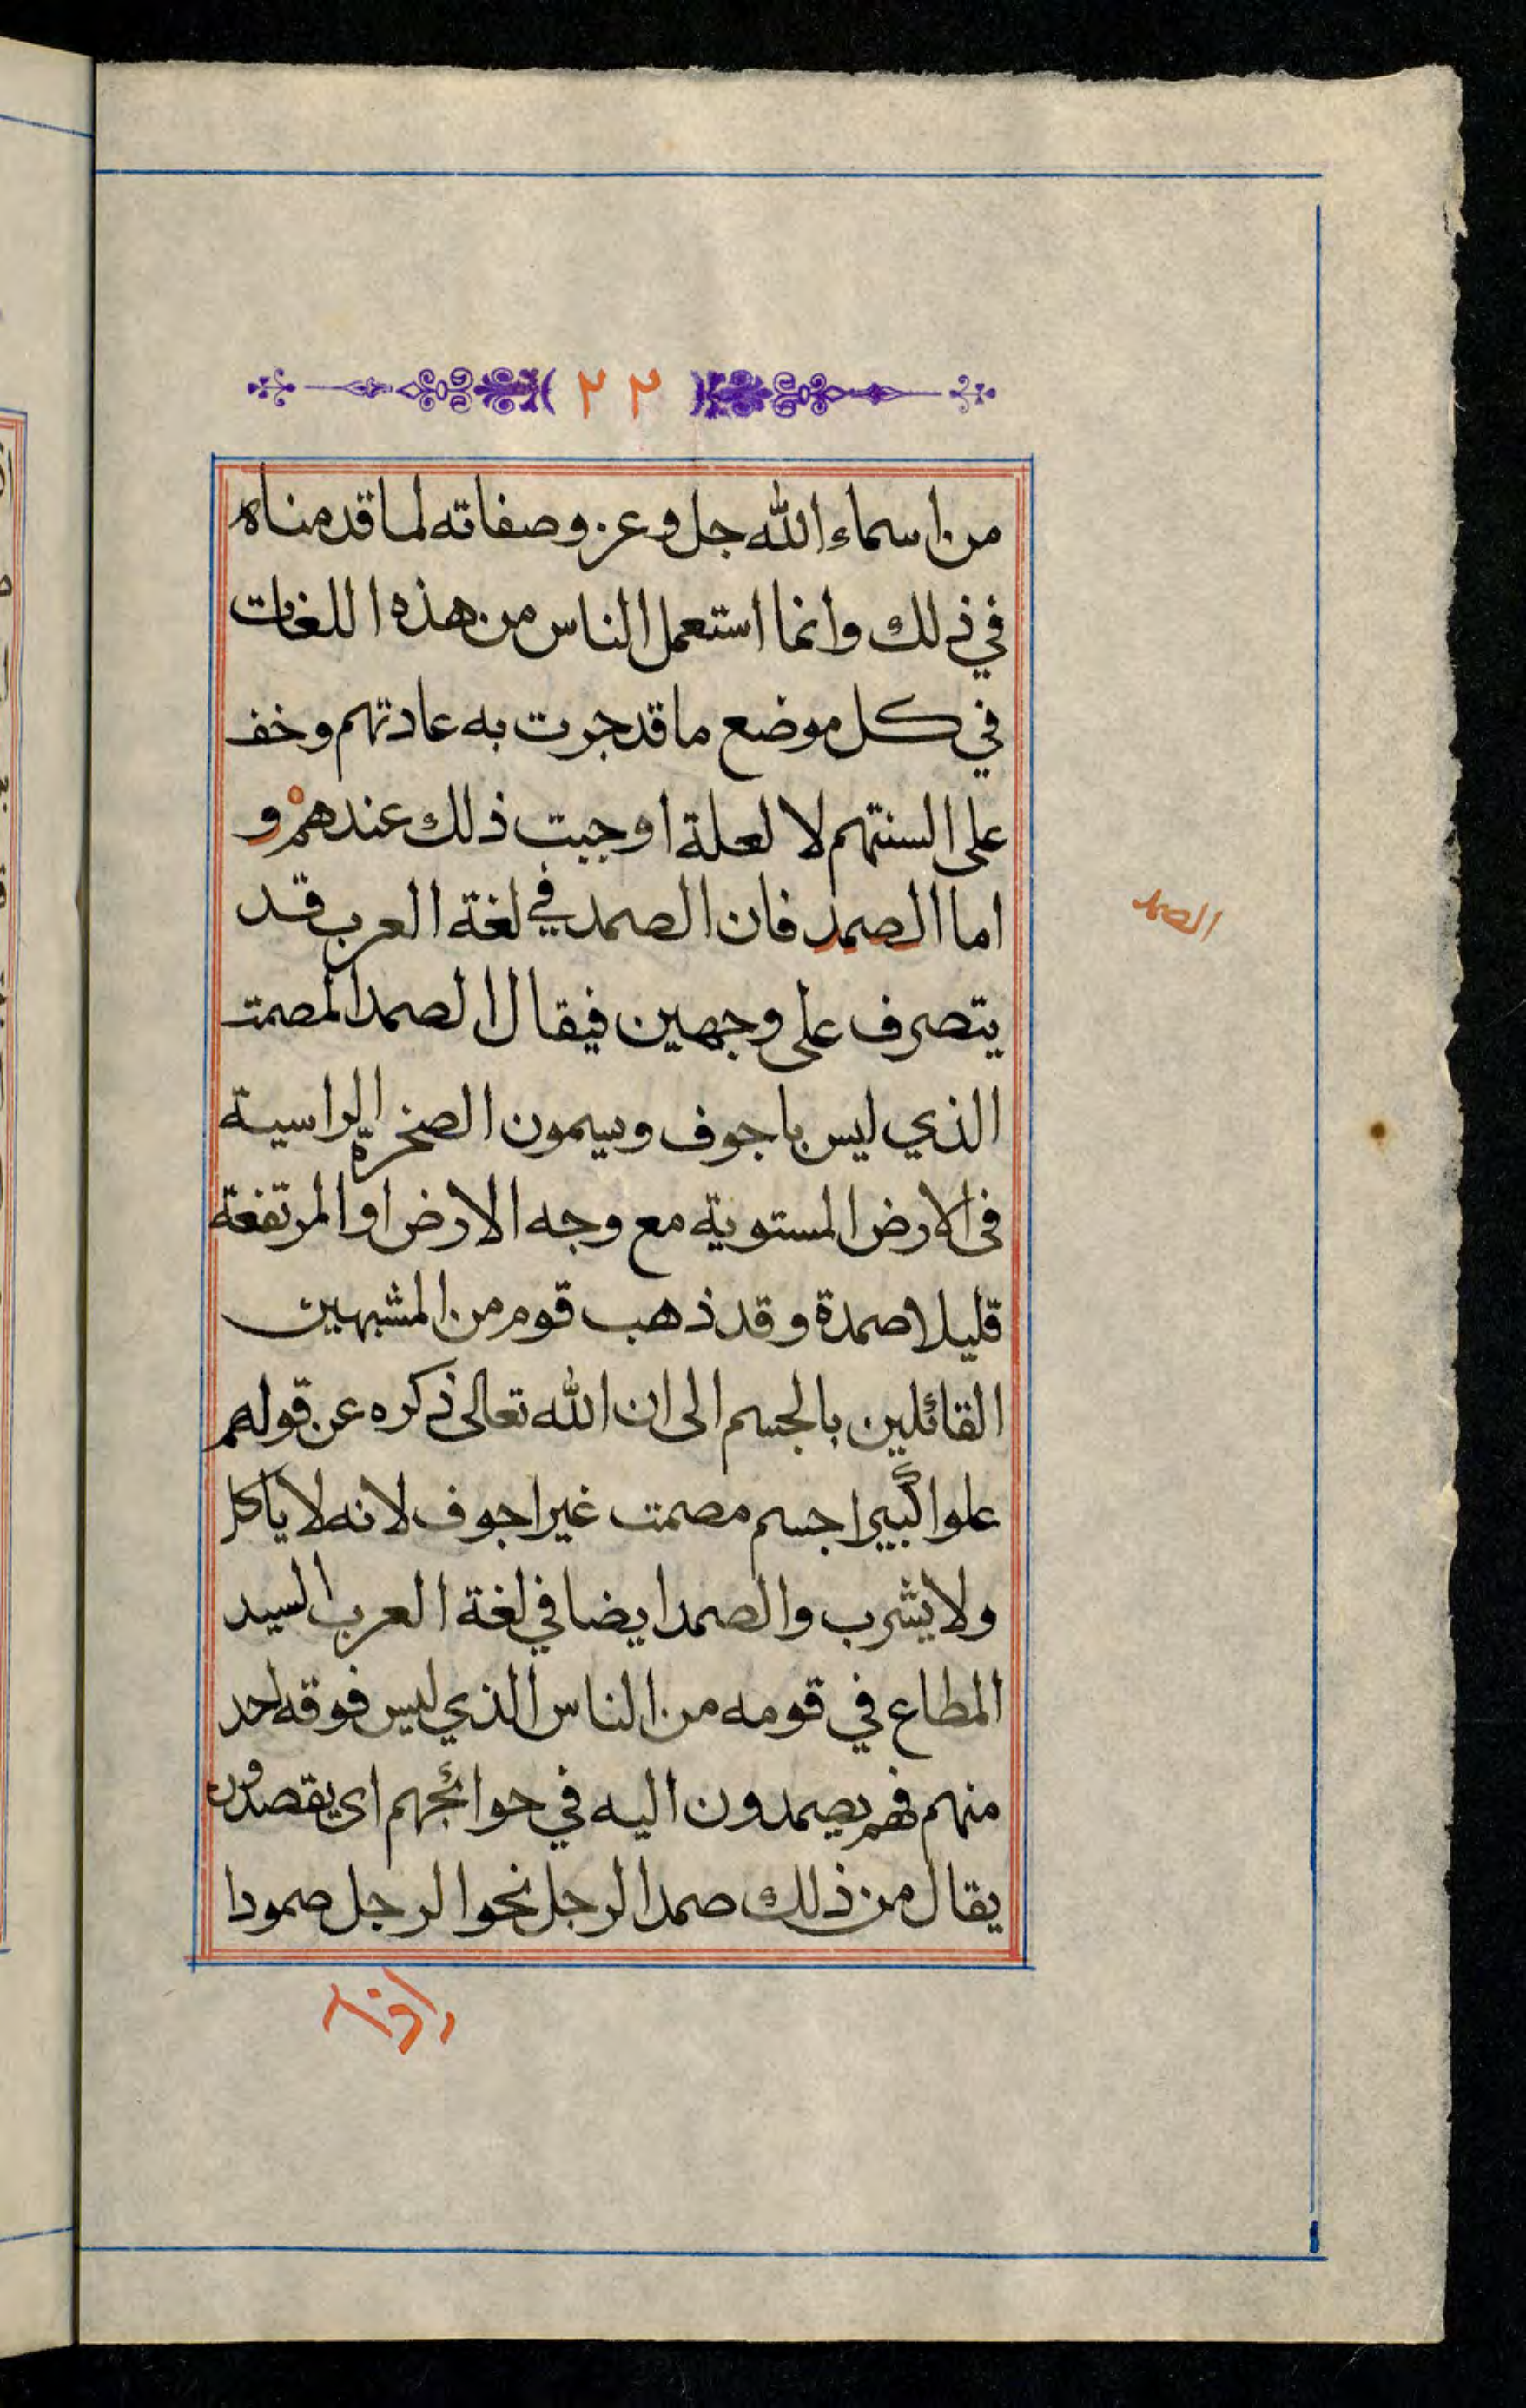 ٢٢
من اسماء الله جل وعز وصفاته لما قدمناه
في ذلك وانما استعمل الناس من هذه اللغات
في كل موضع ما قد جرت به عادتهم وخف
على السنتهم لا لعلة اوجبت ذلك عندهم و
اما الصمد فان الصمد في لغة العرب قد
الصمد
يتصرف على وجهين فيقال الصمد المصمت
الذي ليس باجوف ويسمون الصخرة الراسية
في الارض المستوية مع وجه الارض او المرتفعة
قليلا صمدة وقد ذهب قوم من المشبهين
القائلين بالجسم الى ان الله تعالى ذكره عن قولهم
علوا كبيرا جسم مصمت غير اجوف لانه لا ياكل
ولا يشرب والصمد ايضا في لغة العرب السيد
المطاع في قومه من الناس الذي ليس فوقه احد
منهم فهم يصمدون اليه في حوائجهم اى يقصدون
يقال من ذلك صمد الرجل نحو الرجل صمودا